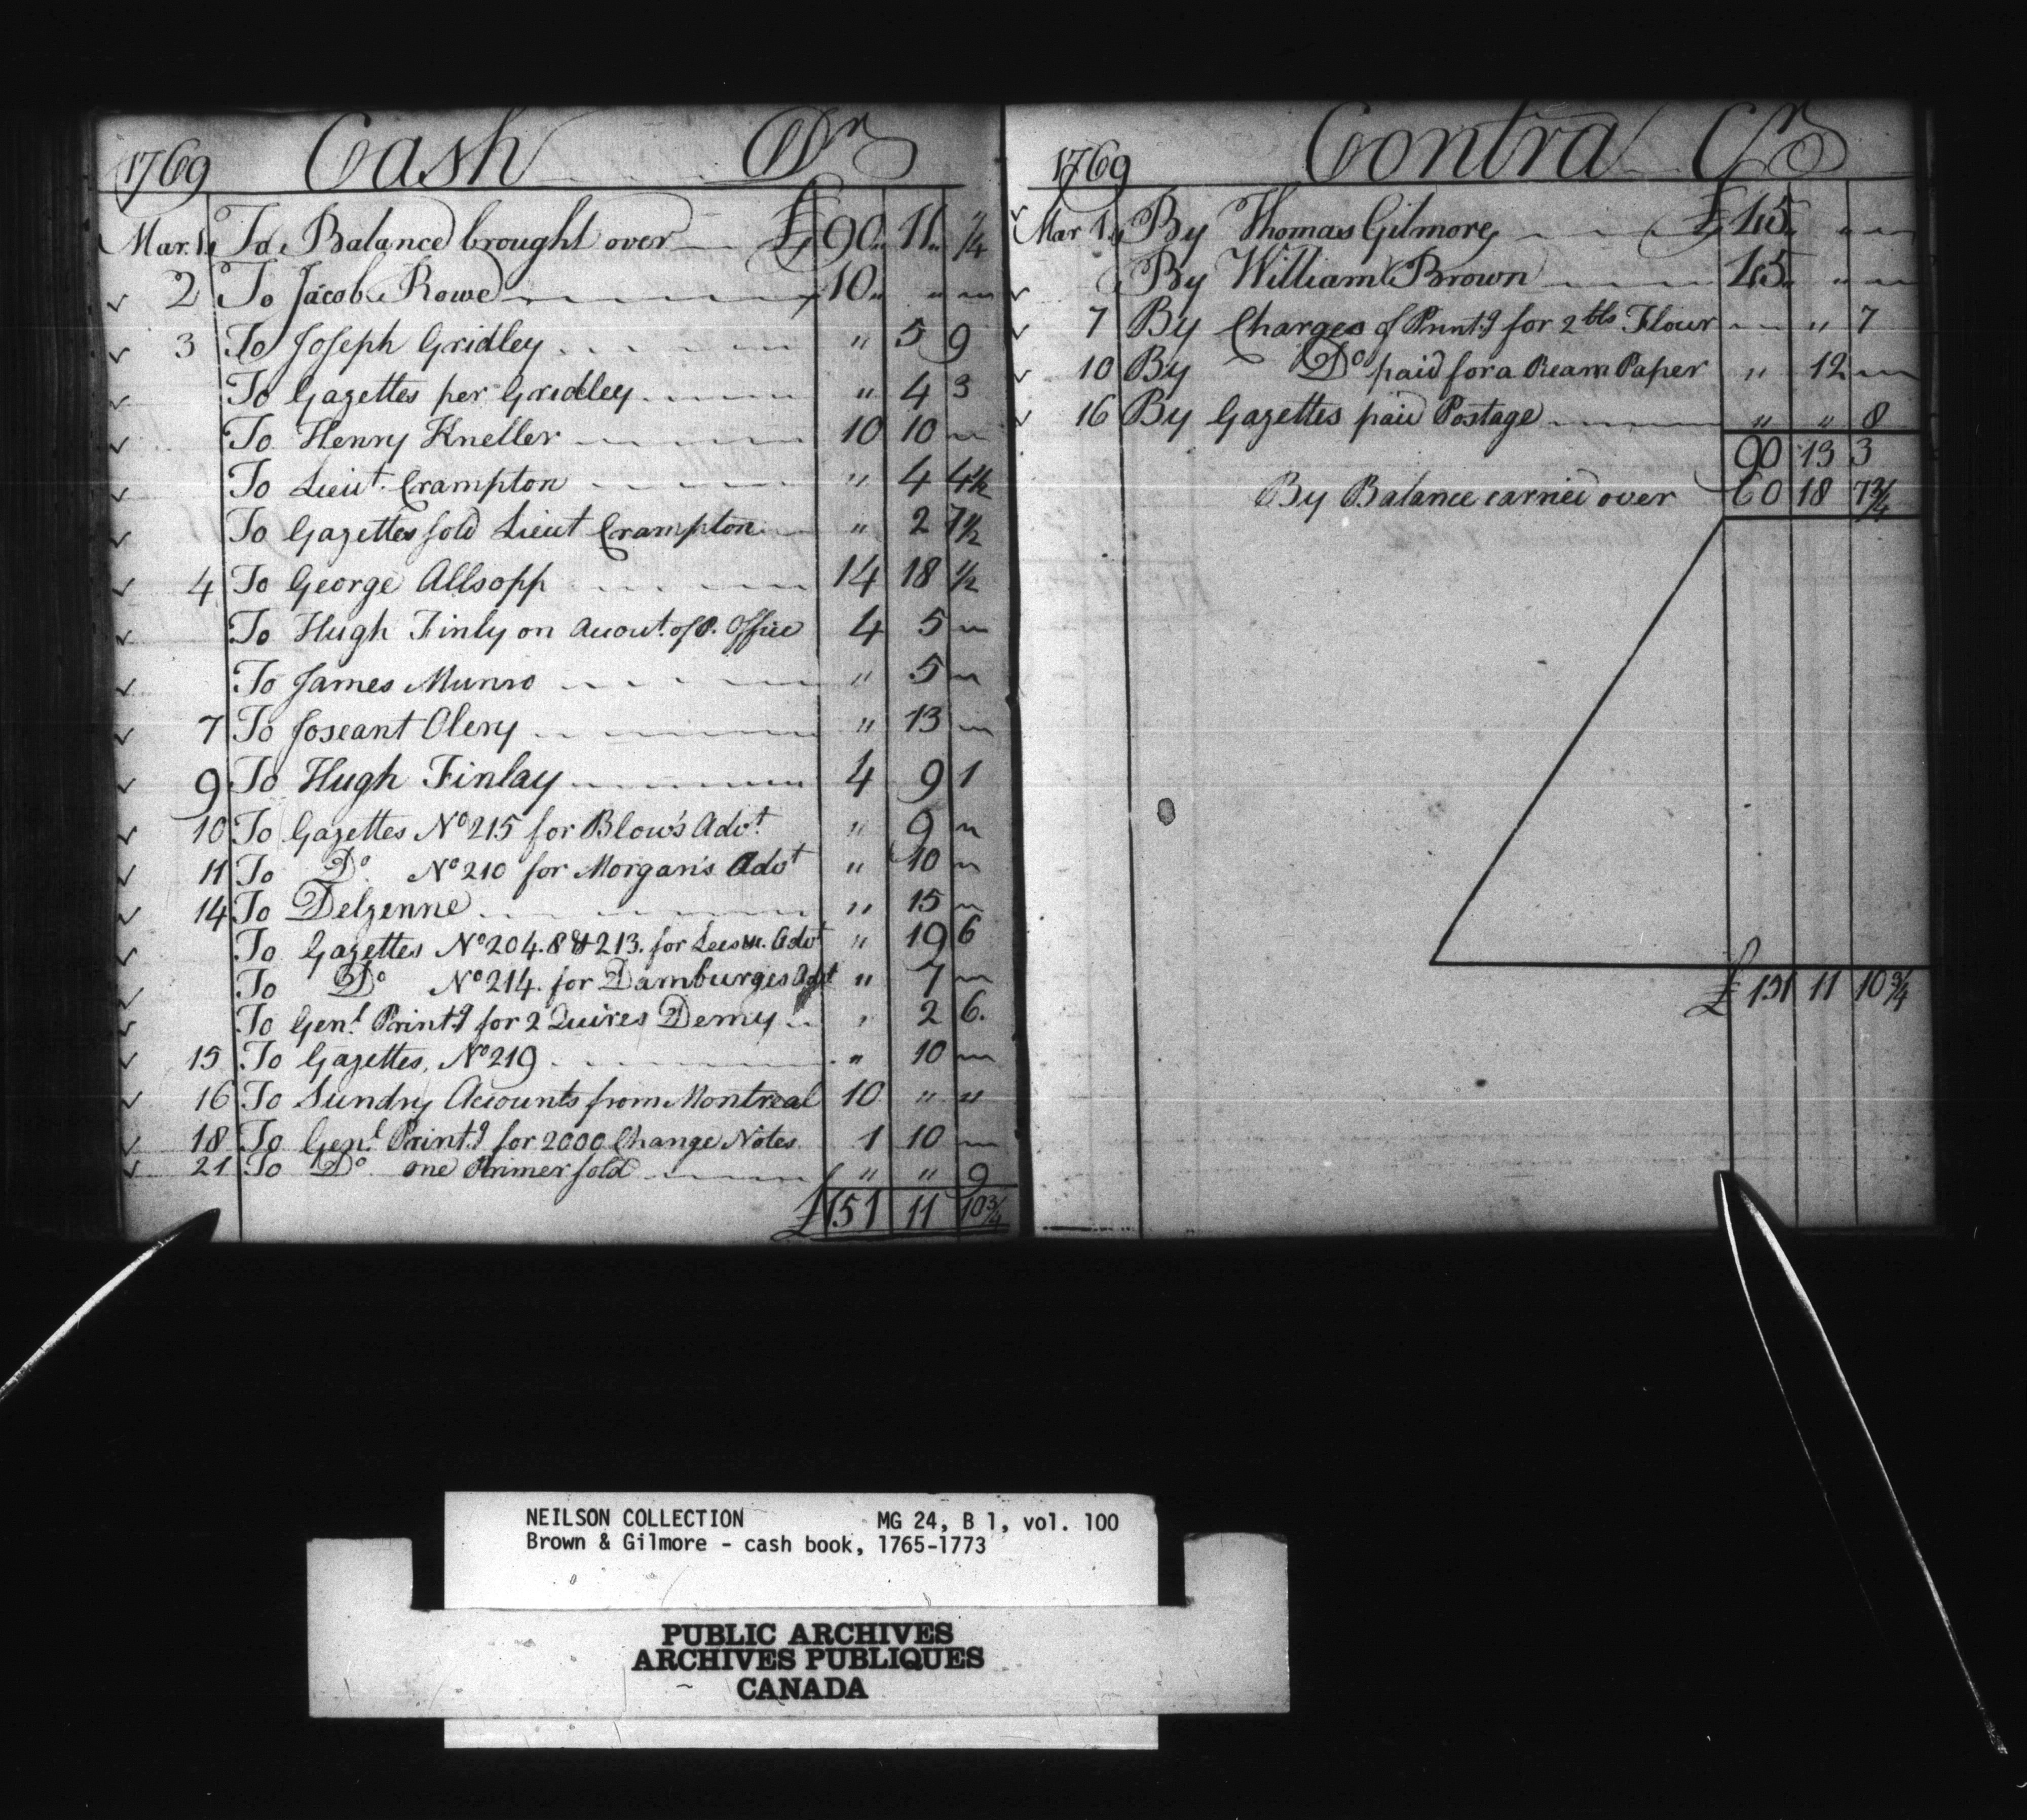 1769 Cash Dr
Mar. 1. To Balance brought over £ 90 .. 11 .. ¼
2 To Jacob Rowe 10 .. " "
3 To Joseph Gridley " 5 9
To Gazettes per Gridley " 4 3
To Henry Kneller 10 10 "
To Lieut. Crampton " 4 4½
To Gazettes sold Lieut Crampton " 2 7½
4 To George Allsopp 14 18 ½
To Hugh Finly on Accout. of P. Office 4 5 "
To James Munro " 5 "
7 To Joseant Olery " 13 "
9 To Hugh Finlay 4 9 1
10 To Gazettes No 215 for Blow's Advt " 9 "
11 To Do. No 210 for Morgan's Advt " 10 "
14 To Delzenne " 15 "
To Gazettes No 204. 8 & 213. for Advt " 19 6
To Do No 214. for Damburges Advt " 7 "
To Genl. Printg for 2 Quires Demy " 2 6.
15 To Gazettes, No 219 " 10 "
16 To Sundry Accounts from Montreal 10 " "
18 To Genl Printg for 2000 Change Notes 1 10 "
21 To Do one Primer sold " " 9
£ 151 11 10¾
1769 Contra Cr
Mar 1. By Thomas Gilmore £ 45. " "
By William Brown 45. " "
7 By Charges of Printg for 2 bls Flour " 7
10 By Do paid for a Ream Paper " 12 "
16 By Gazettes paid Postage " " 8
90 13 3
By Balance carried over 60 18 7¾
£ 151 11 10¾
NEILSON COLLECTION MG 24, B 1, vol. 100
Brown & Gilmore - cash book, 1765-1773
PUBLIC ARCHIVES
ARCHIVES PUBLIQUES
CANADA